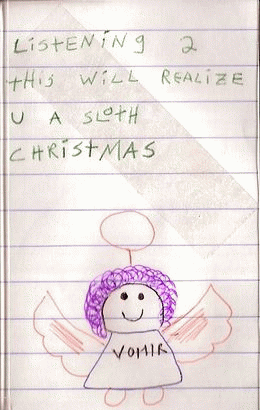 LiStENiNg 2
tHiS WiLL REALIZE
U A SLOtH
CHRiStMAS
VOMIR